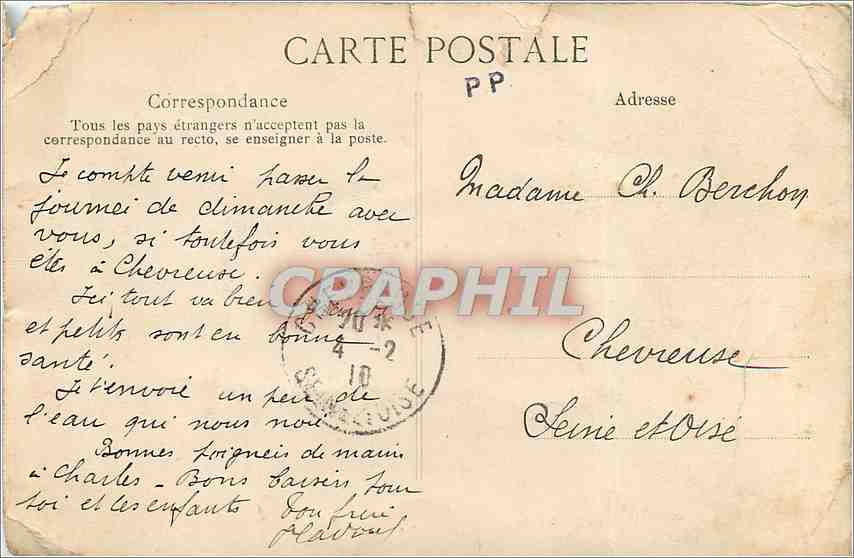 CARTE POSTALE
PP
Correspondance
Tous les pays étrangers n'acceptent pas la
correspondance au recto, se enseigner à la poste.
Je compte venir passer la
journeé de dimanche avec
vous, si toutefois vous
êtes à Chevreuse.
Ici tout va bien
et petits sont en bonne
santé.
Je t'envoie un peu de
l'eau qui nous noie
Bonnes poigneis de mains
à Charles - Bons baisers pour
toi et les enfants Ton frère
CPAPHIL
20 *
4 - 2
10
SEINE ET OISE
Adresse
Madame Ch. Berchon
Chevreuse
Seine et Oise